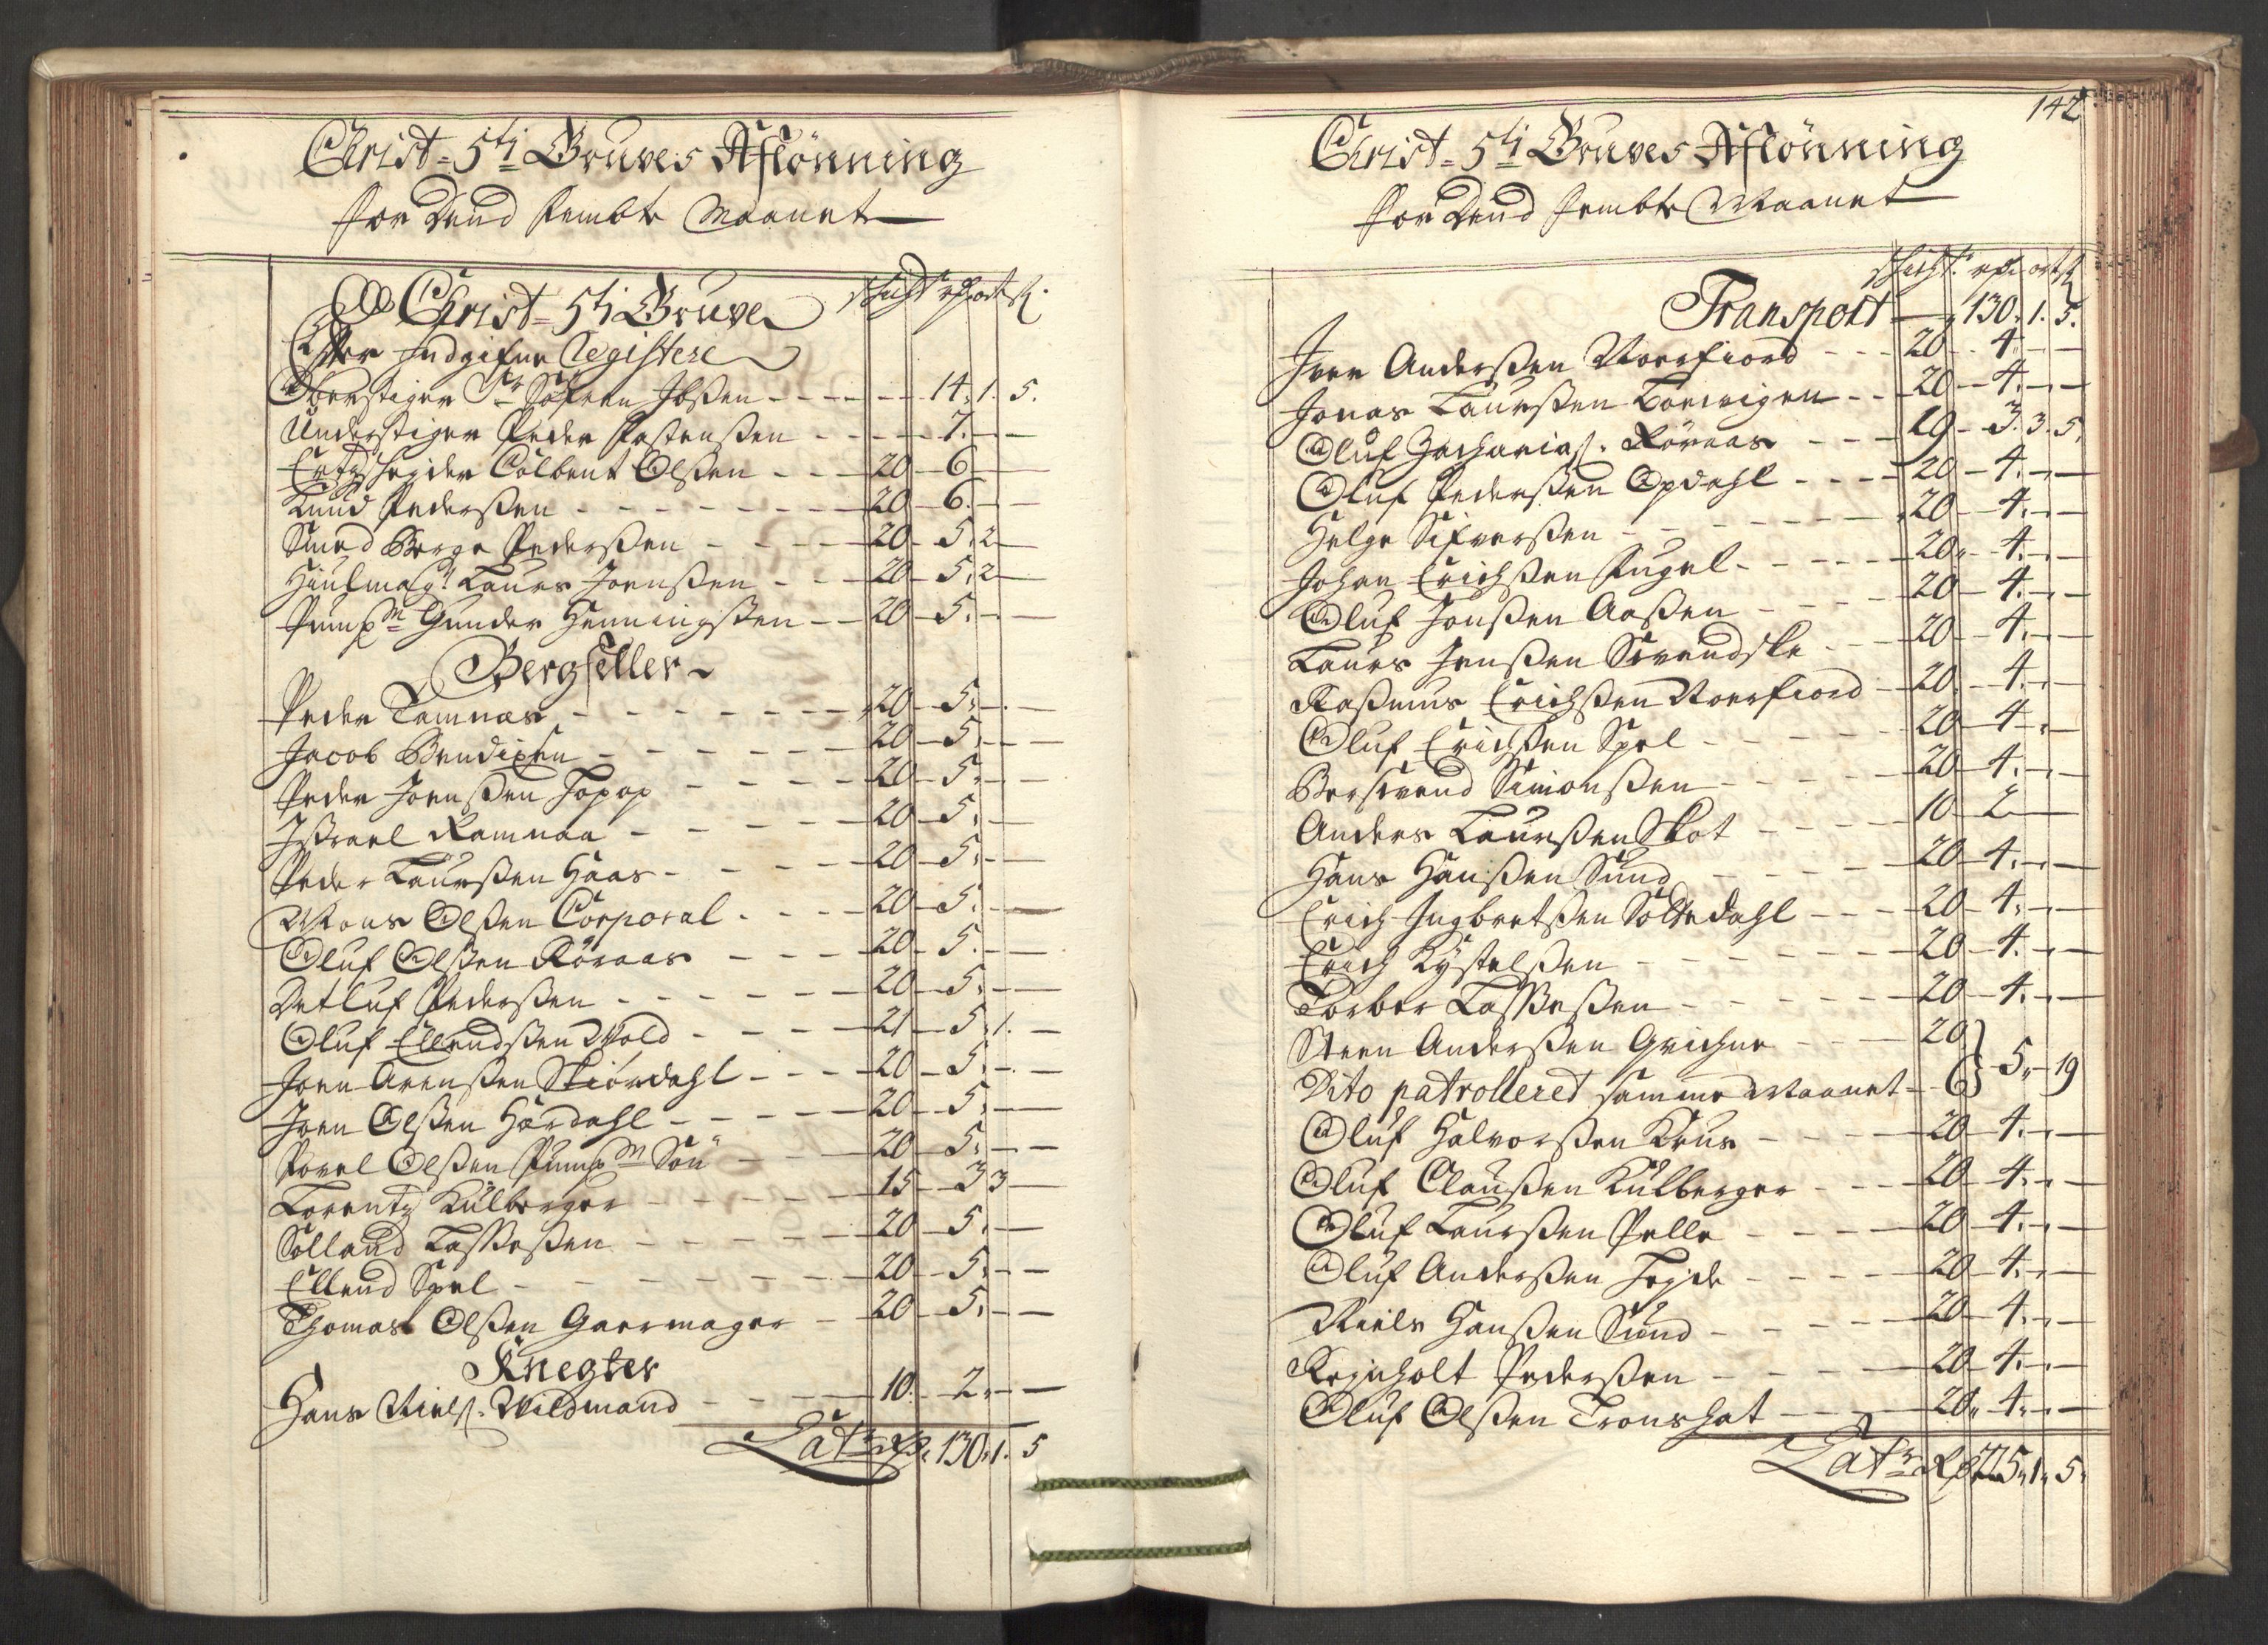 Christ= 5ti Gruves Aflönning
for Dend Fembte Maanet
Christ= 5ti Gruve
Efter Indgifne Registere
schicht rdr ort s
Oberstiger Sr Söfren Ibßen - - - - 14. 1. 5.
Understiger Peder Postenßen - - - 7. - -
Ertzshejder Colbent Olßen - - - 20 - 6 -
Knud Pederßen - - - - - 20 - 6. -
Smed Borge Pederßen - - - - 20 - 5. 2 -
Hiulmagr Laurs Joenßen - - - 20 - 5. 2 -
Pumpm Gunder Henningßen - - 20 - 5. - -
Bergseller
Peder Tamnas - - - - - 20 - 5. - -
Jacob Bendixen - - - - - 20 - 5. - -
Peder Joenßen Topop - - - - 20 - 5. - -
Ißrael Ramnaa - - - - - 20 - 5. -
Peder Laurßen Haas - - - - 20 - 5. - -
Mons Olßen Corporal - - - - 20 - 5. -
Oluf Olßen Röraas - - - 20 - 5. - -
Detluf Pederßen - - - - - 20 - 5. - -
Oluf Ellendßen Wold - - - - 21 - 5. 1. -
Joen Arenßen Skiördahl - - - 20 - 5. - -
Joen Olßen Hardahl - - - - 20 - 5. -
Povel Olßen Pumpm Sön - - - 20 - 5. - -
Lorentz Kulberger - - - - 15 - 3 3 -
Solland Laßßeßen - - - - - 20 - 5. -
Ellend Spel - - - - - - 20 - 5. - -
Thomas Olßen Gaermager - 20 - 5. - -
Knegter
Hans Nielß. Wildmand - - - 10. - 2. - -
Latr Rdr 130. 1. 5
142
Christ= 5ti Gruves Aflönning
for Dend Fembte Maanet
schicht. rdr ort s
Transport - 130. 1. 5.
Iver Anderßen Noerfiord - - - 20 - 4 - -
Jonas Laurßen Borvigen - - 20 - 4. - -
Oluf Zachariaß. Röraas - - - 19 - 3. 3. 5.
Oluf Pederßen Opdahl - - - - 20 - 4. - -
Helge Sifverßen - - - - - 20 - 4. - -
Johan Erichßen Fugel - - - - 20. - 4. - -
Oluf Jonßen Aaßen - - - - 20 - 4. - -
Laurs Jenßen Svendske - - - 20 - 4. - -
Raßmus Erichßen Noerfiord - 20. - 4. - -
Oluf Erichßen Spel - - - - - 20 - 4 - -
Bersvend Simonßen - - - - - 20 - 4. - -
Anders Laurßen Skot - - - - 10 - 2 -
Hans Hanßen Sund - - - - 20 - 4. - -
Erich Ingbretßen Soltedahl - - - 20 - 4. - -
Erich Kystelßen - - - - - - 20 - 4. - -
Torber Laßßeßen - - - - - 20 - 4. - -
Steen Anderßen Grichne - - - 20
Dito patrolleret samme Maanet - 6 } 5. - 19
Oluf Halvorßen Krus - - - - 20 - 4. - -
Oluf Claußen Kulberger - - - 20 - 4. - -
Oluf Laurßen Pelle - - - - 20 - 4. - -
Oluf Anderßen Hejde - - - - 20 - 4. - -
Niels Hanßen Sund - - - - - 20 - 4. - -
Rejnholt Pederßen - - - - - 20 - 4. - -
Oluf Olßen Tronshat - - - 20. 4. - -
Latr Rdr 225. 1. 5.